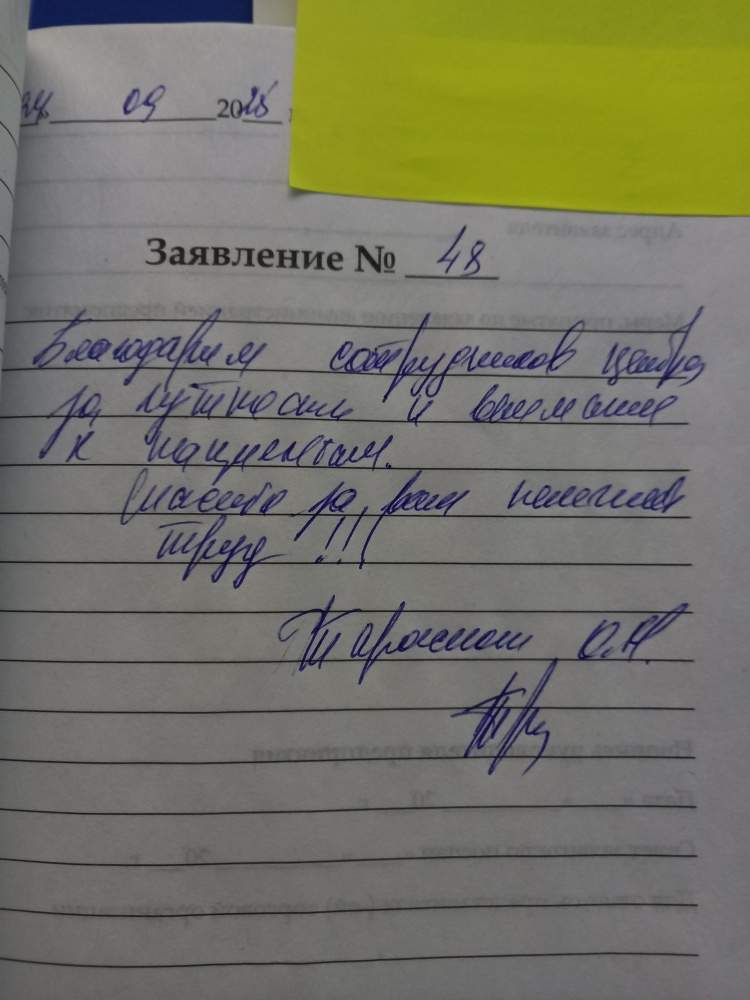 24 09 2025
Заявление № 48
Благодарим сотрудников центра
за чуткость и внимание
к пациентам.
Спасибо за ваш нелегкий
труд!!!
О.Н.